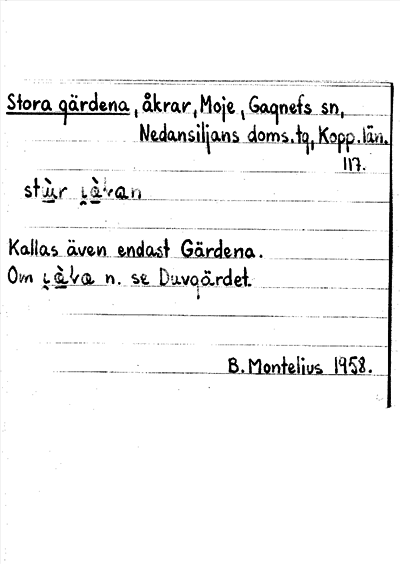 Stora gärdena, åkrar, Moje, Gagnefs sn,
Nedansiljans doms.tg, Kopp.län.
117.
Kallas även endast Gärdena.
Om n. se Duvgärdet.
B. Montelius 1958.